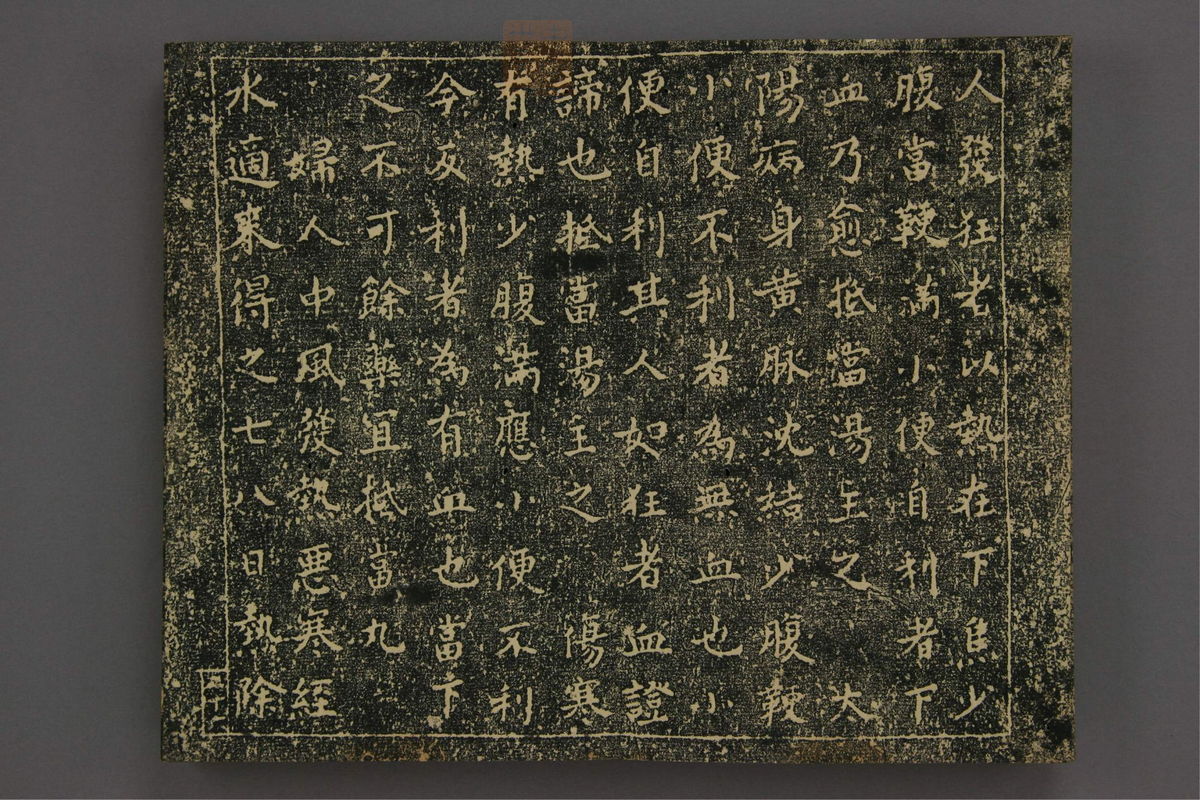 人發狂者以熱在下焦少
腹當鞕滿小便自利者下
血乃愈抵當湯主之　太
陽病身黄脉沈結少腹鞕
小便不利者為無血也小
便自利其人如狂者血證
諦也抵當湯主之　傷寒
有熱少腹滿應小便不利
今反利者為有血也當下
之不可餘藥宜抵當丸
婦人中風發熱惡寒經
水適來得之七八日熱除